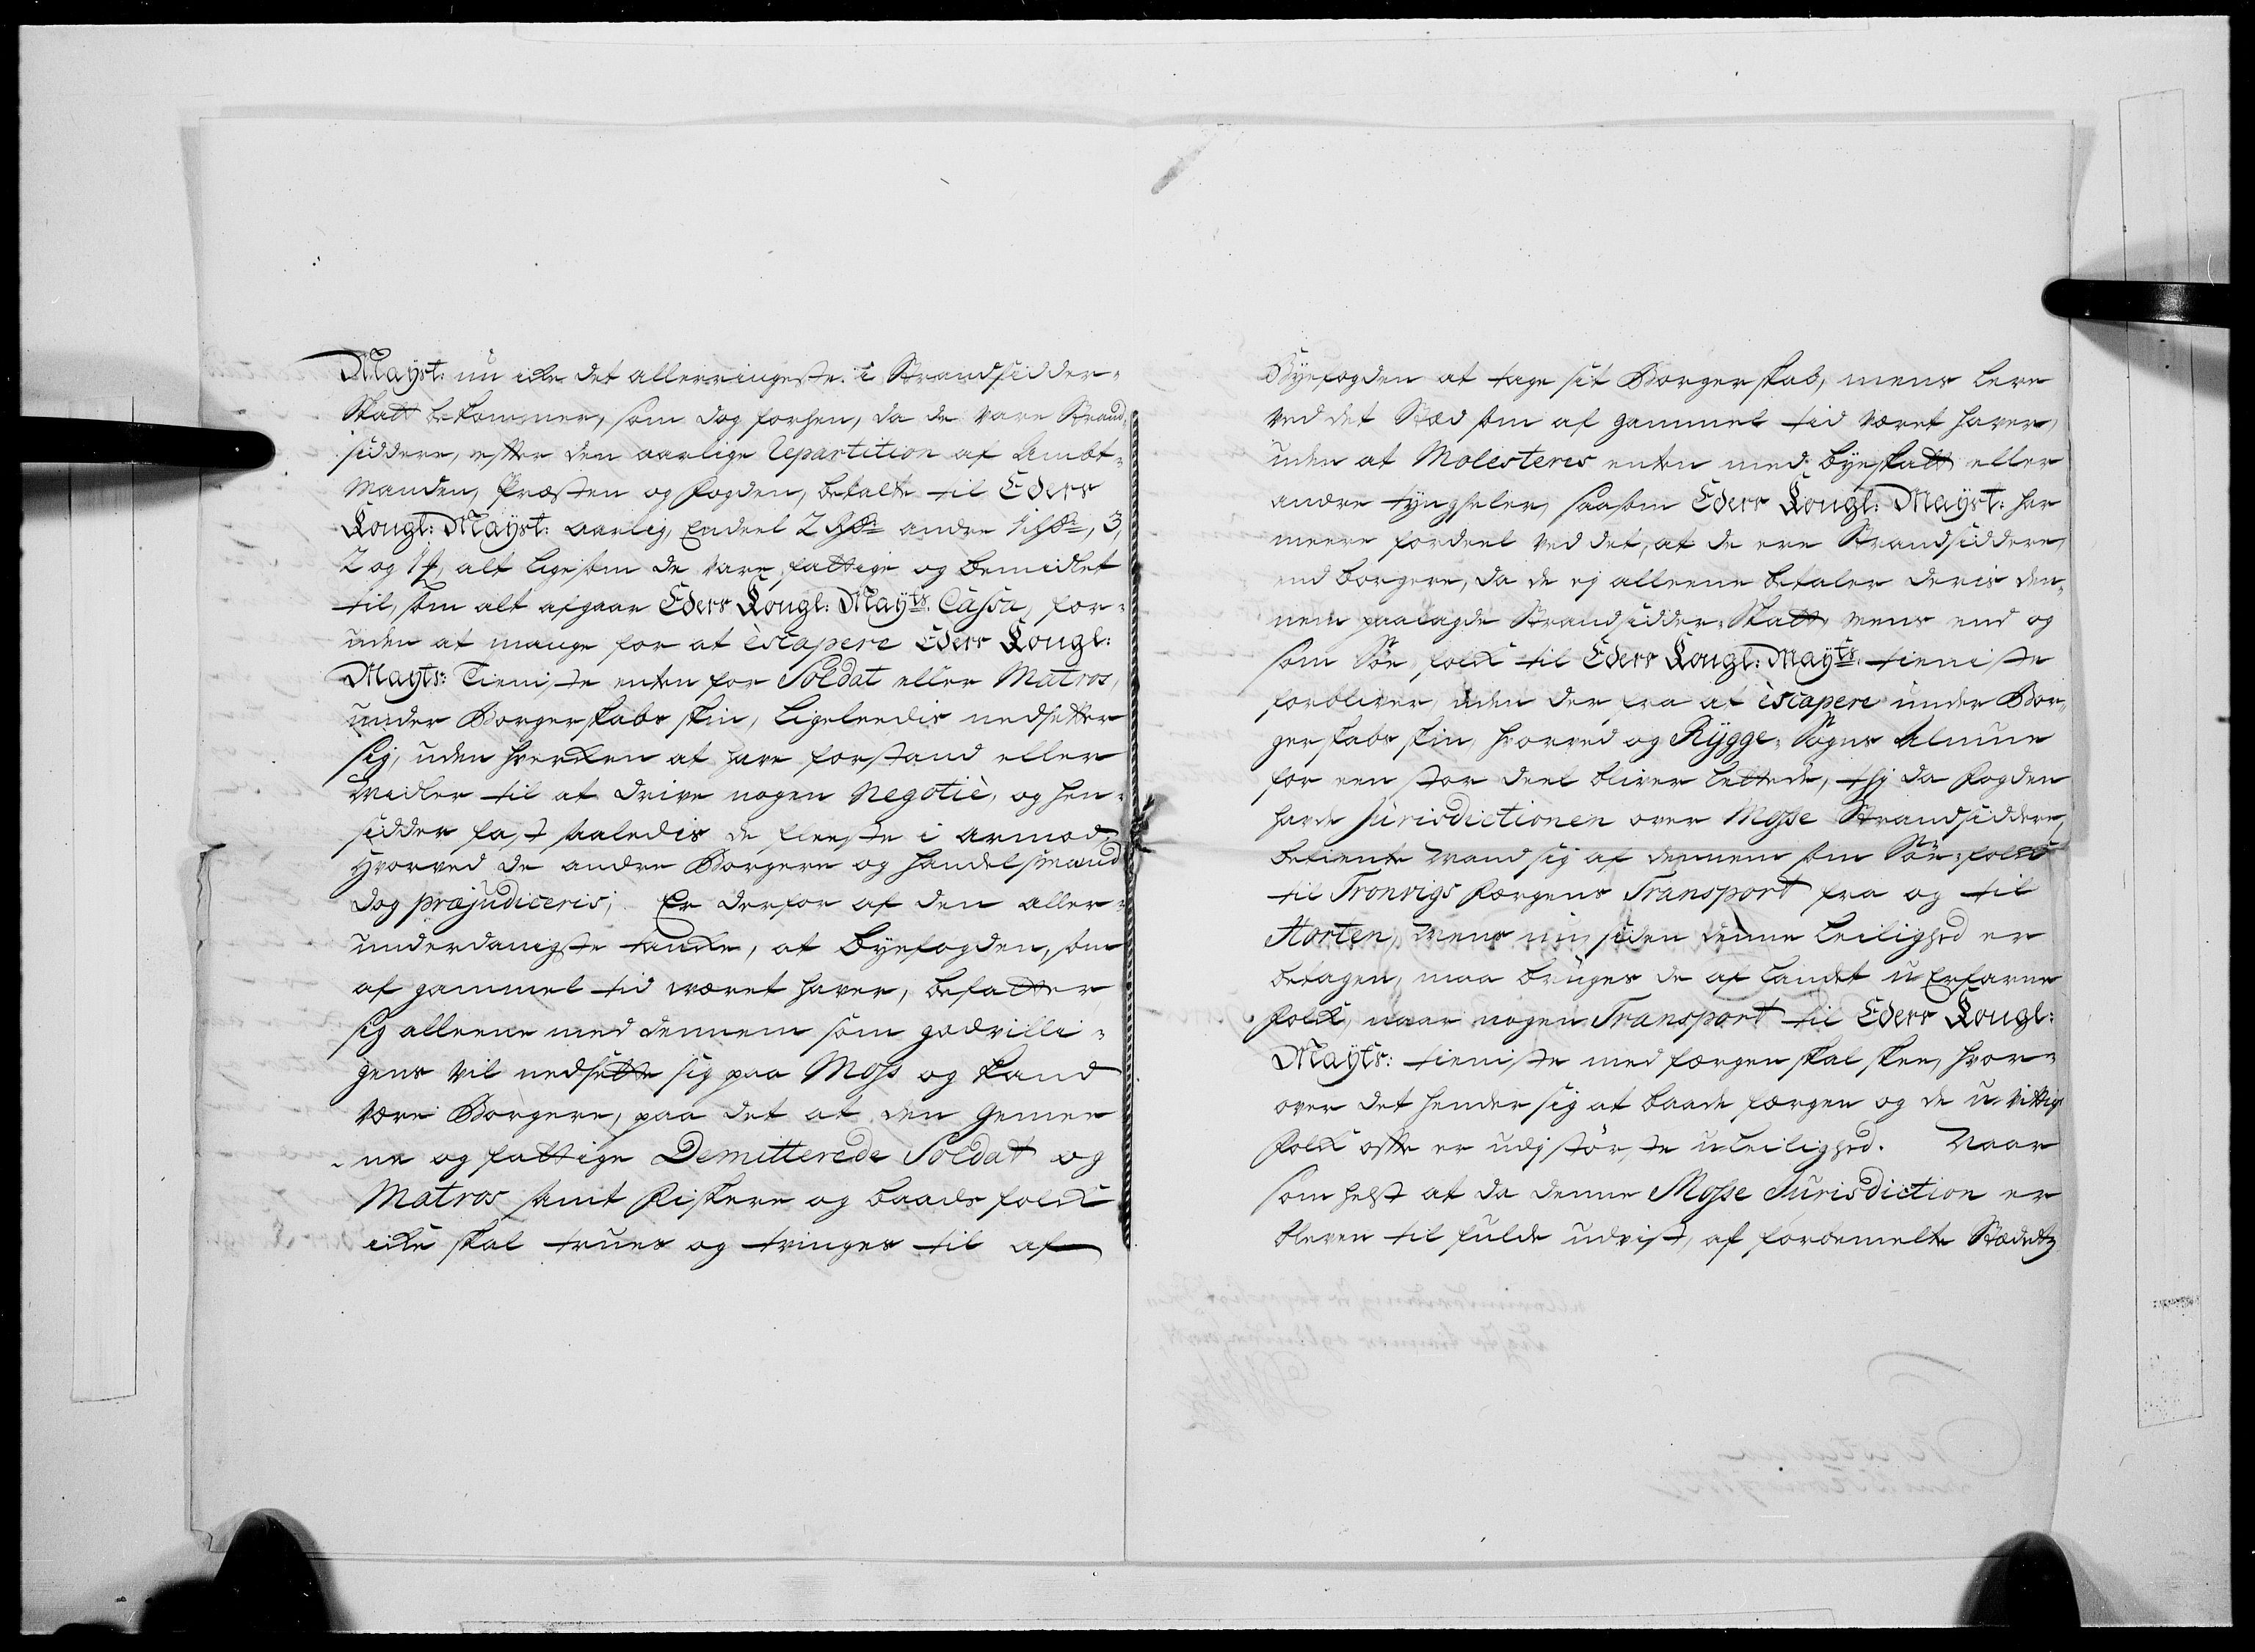 Mayst: nu icke det allerringeste i Strandsidder-
Skatt bekommer, som dog forhen, da de vare Strand-
siddere, efter den aarlige Repartition af Ambt-
Manden, Præsten og Fogden, betalte til Eders
Kongl: Mayst: aarlig, Endeel 2 Rdr andre 1 Rdr, 3,
2 og 1 ort, alt ligesom de vare fattige og bemidlet
til, som alt afgaar Eders Kongl: Mayts. Cassa, for-
uden at mange for at èscapere Eders Kongl:
Mayts: Tieniste enten for Soldat eller Matros,
under Borgerskabs skin, ligeleedis nedsetter
sig, uden hverken at have forstand eller
Midler til at drive nogen Negotiè, og hen-
sidder fast saaledis de fleeste i armod,
Hvorved de andre Borgere og Handelsmænd
dog præjudiceris; Er derfor af den aller-
underdanigste tancke, at Byefogden, som
af gammel tid været haver, befatter
sig alleene med dennem som godvilli-
gens vil nedsette sig paa Moss og kand
være Borgere, paa det at den Gemee-
ne og fattige Demitterede Soldat og
Matros samt Fiskere og baads folck
icke skal trues og tvinges til af
Byefogden at tage sit Borgerskab, mens leve
ved det Stæd som af gammel tid været haver,
uden at Molesteres enten med byeskatt eller
andre tyngseler, saasom Eders Kongl: Mayst: har
meere fordeel ved det, at de ere Strandsiddere,
end borgere, da de ej alleene betaler deris den-
nem paalagde Strandsidder-Skatt, mens end og
som Søe-folck til Eders Kongl: Mayts. tieniste
forbliver, uden der fra at èscapere under Bor-
gerskabs skin, hvorved og Rygge-Sogns Almue
for een stor deel bliver lettede, thj da Fogden
havde Jurisdictionen over Mosse Strandsiddere,
betiente mand sig af dennem som Søe-folck
til Tronvigs Færgens Transport fra og til
Horten, Mens nu, siden denne Leilighed er
betagen, maa bruges de af Landet u-Erfarne
Folck, naar nogen Transport til Eders Kongl:
Mayts: tieniste med færgen skal skee, hvor-
over det hender sig at baade færgen og de u-vittige
Folck ofte er udj største uleilighed. Naar
som helst at da denne Mosse Jurisdiction er
bleven til fulde udvist, af forbemelte Stædets